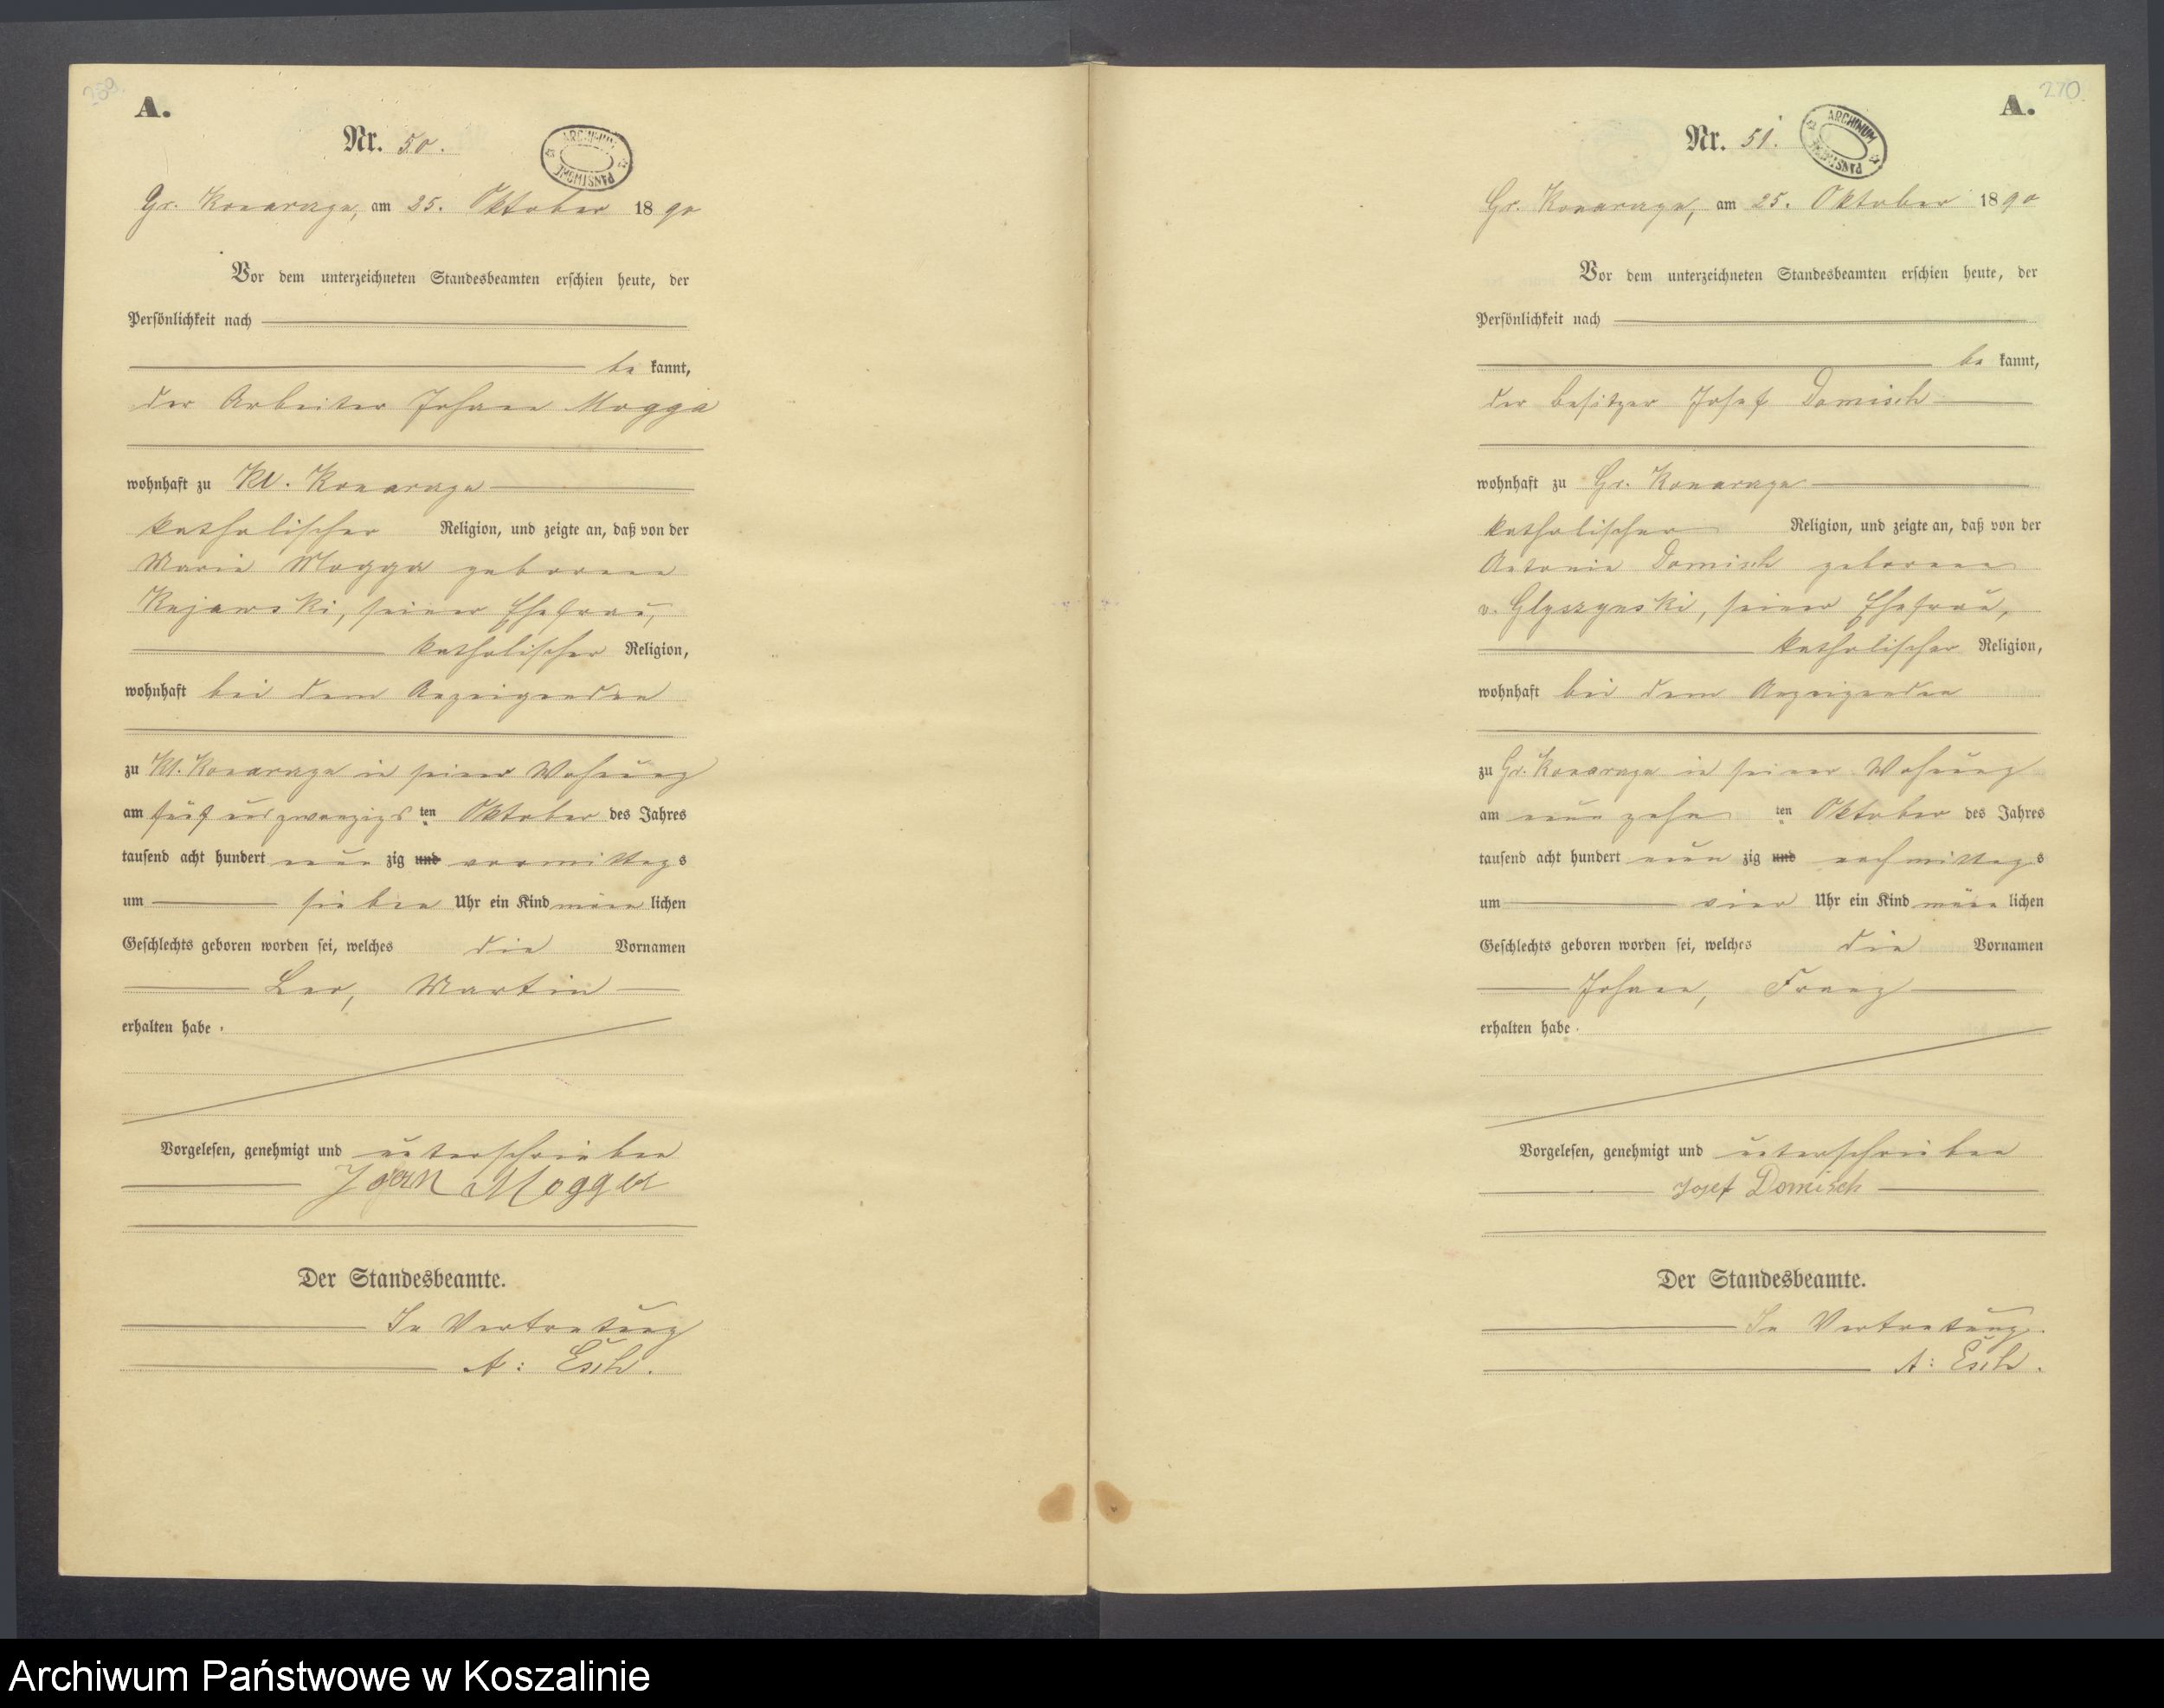 289.
A.
Nr. 50.
ARCHIWUM PAŃSTWOWE
Gr. Konarzyn, am 25. Oktober 1890
Vor dem unterzeichneten Standesbeamten erschien heute, der
Persönlichkeit nach
be kannt,
der Arbeiter Johann Mogga
wohnhaft zu Kl. Konarzyn
katholischer Religion, und zeigte an, daß von der
Marie Mogga geborene
Kujawski, seiner Ehefrau,
katholischer Religion,
wohnhaft bei dem Anzeigenden
zu Kl. Konarzyn in seiner Wohnung
am fünf und zwanzigs ten Oktober des Jahres
tausend acht hundert neun zig und vormittags
um sieben Uhr ein Kind männ lichen
Geschlechts geboren worden sei, welches die Vornamen
Leo, Martin
erhalten habe.
Vorgelesen, genehmigt und unterschrieben
Joan Mogga
Der Standesbeamte.
In Vertretung
A: Esch.
270.
A.
Nr. 51.
ARCHIWUM PAŃSTWOWE
Gr. Konarzyn, am 25. Oktober 1890
Vor dem unterzeichneten Standesbeamten erschien heute, der
Persönlichkeit nach
be kannt,
der Besitzer Josef Domisch
wohnhaft zu Gr. Konarzyn
katholischer Religion, und zeigte an, daß von der
Antonie Domisch geborene
v. Glyszynski, seiner Ehefrau,
katholischer Religion,
wohnhaft bei dem Anzeigenden
zu Gr. Konarzyn in seiner Wohnung
am neun zehn ten Oktober des Jahres
tausend acht hundert neun zig und nachmittags
um vier Uhr ein Kind männ lichen
Geschlechts geboren worden sei, welches die Vornamen
Johann, Franz
erhalten habe.
Vorgelesen, genehmigt und unterschrieben
Josef Domisch
Der Standesbeamte.
In Vertretung.
A: Esch.
Archiwum Państwowe w Koszalinie